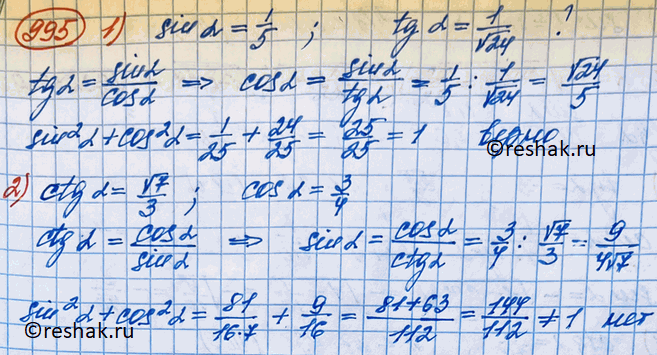 995 1) sin α = 1/5 ; tg α = 1/√24 ?
tg α = sin α/cos α ⇒ cos α = sin α/tg α = 1/5 : 1/√24 = √24/5
sin²α + cos²α = 1/25 + 24/25 = 25/25 = 1 верно
©reshak.ru
2) ctg α = √7/3 ; cos α = 3/4
ctg α = cos α/sin α ⇒ sin α = cos α/ctg α = 3/4 : √7/3 = 9/4√7
sin²α + cos²α = 81/16·7 + 9/16 = 81+63/112 = 144/112 ≠ 1 нет
©reshak.ru
©reshak.ru